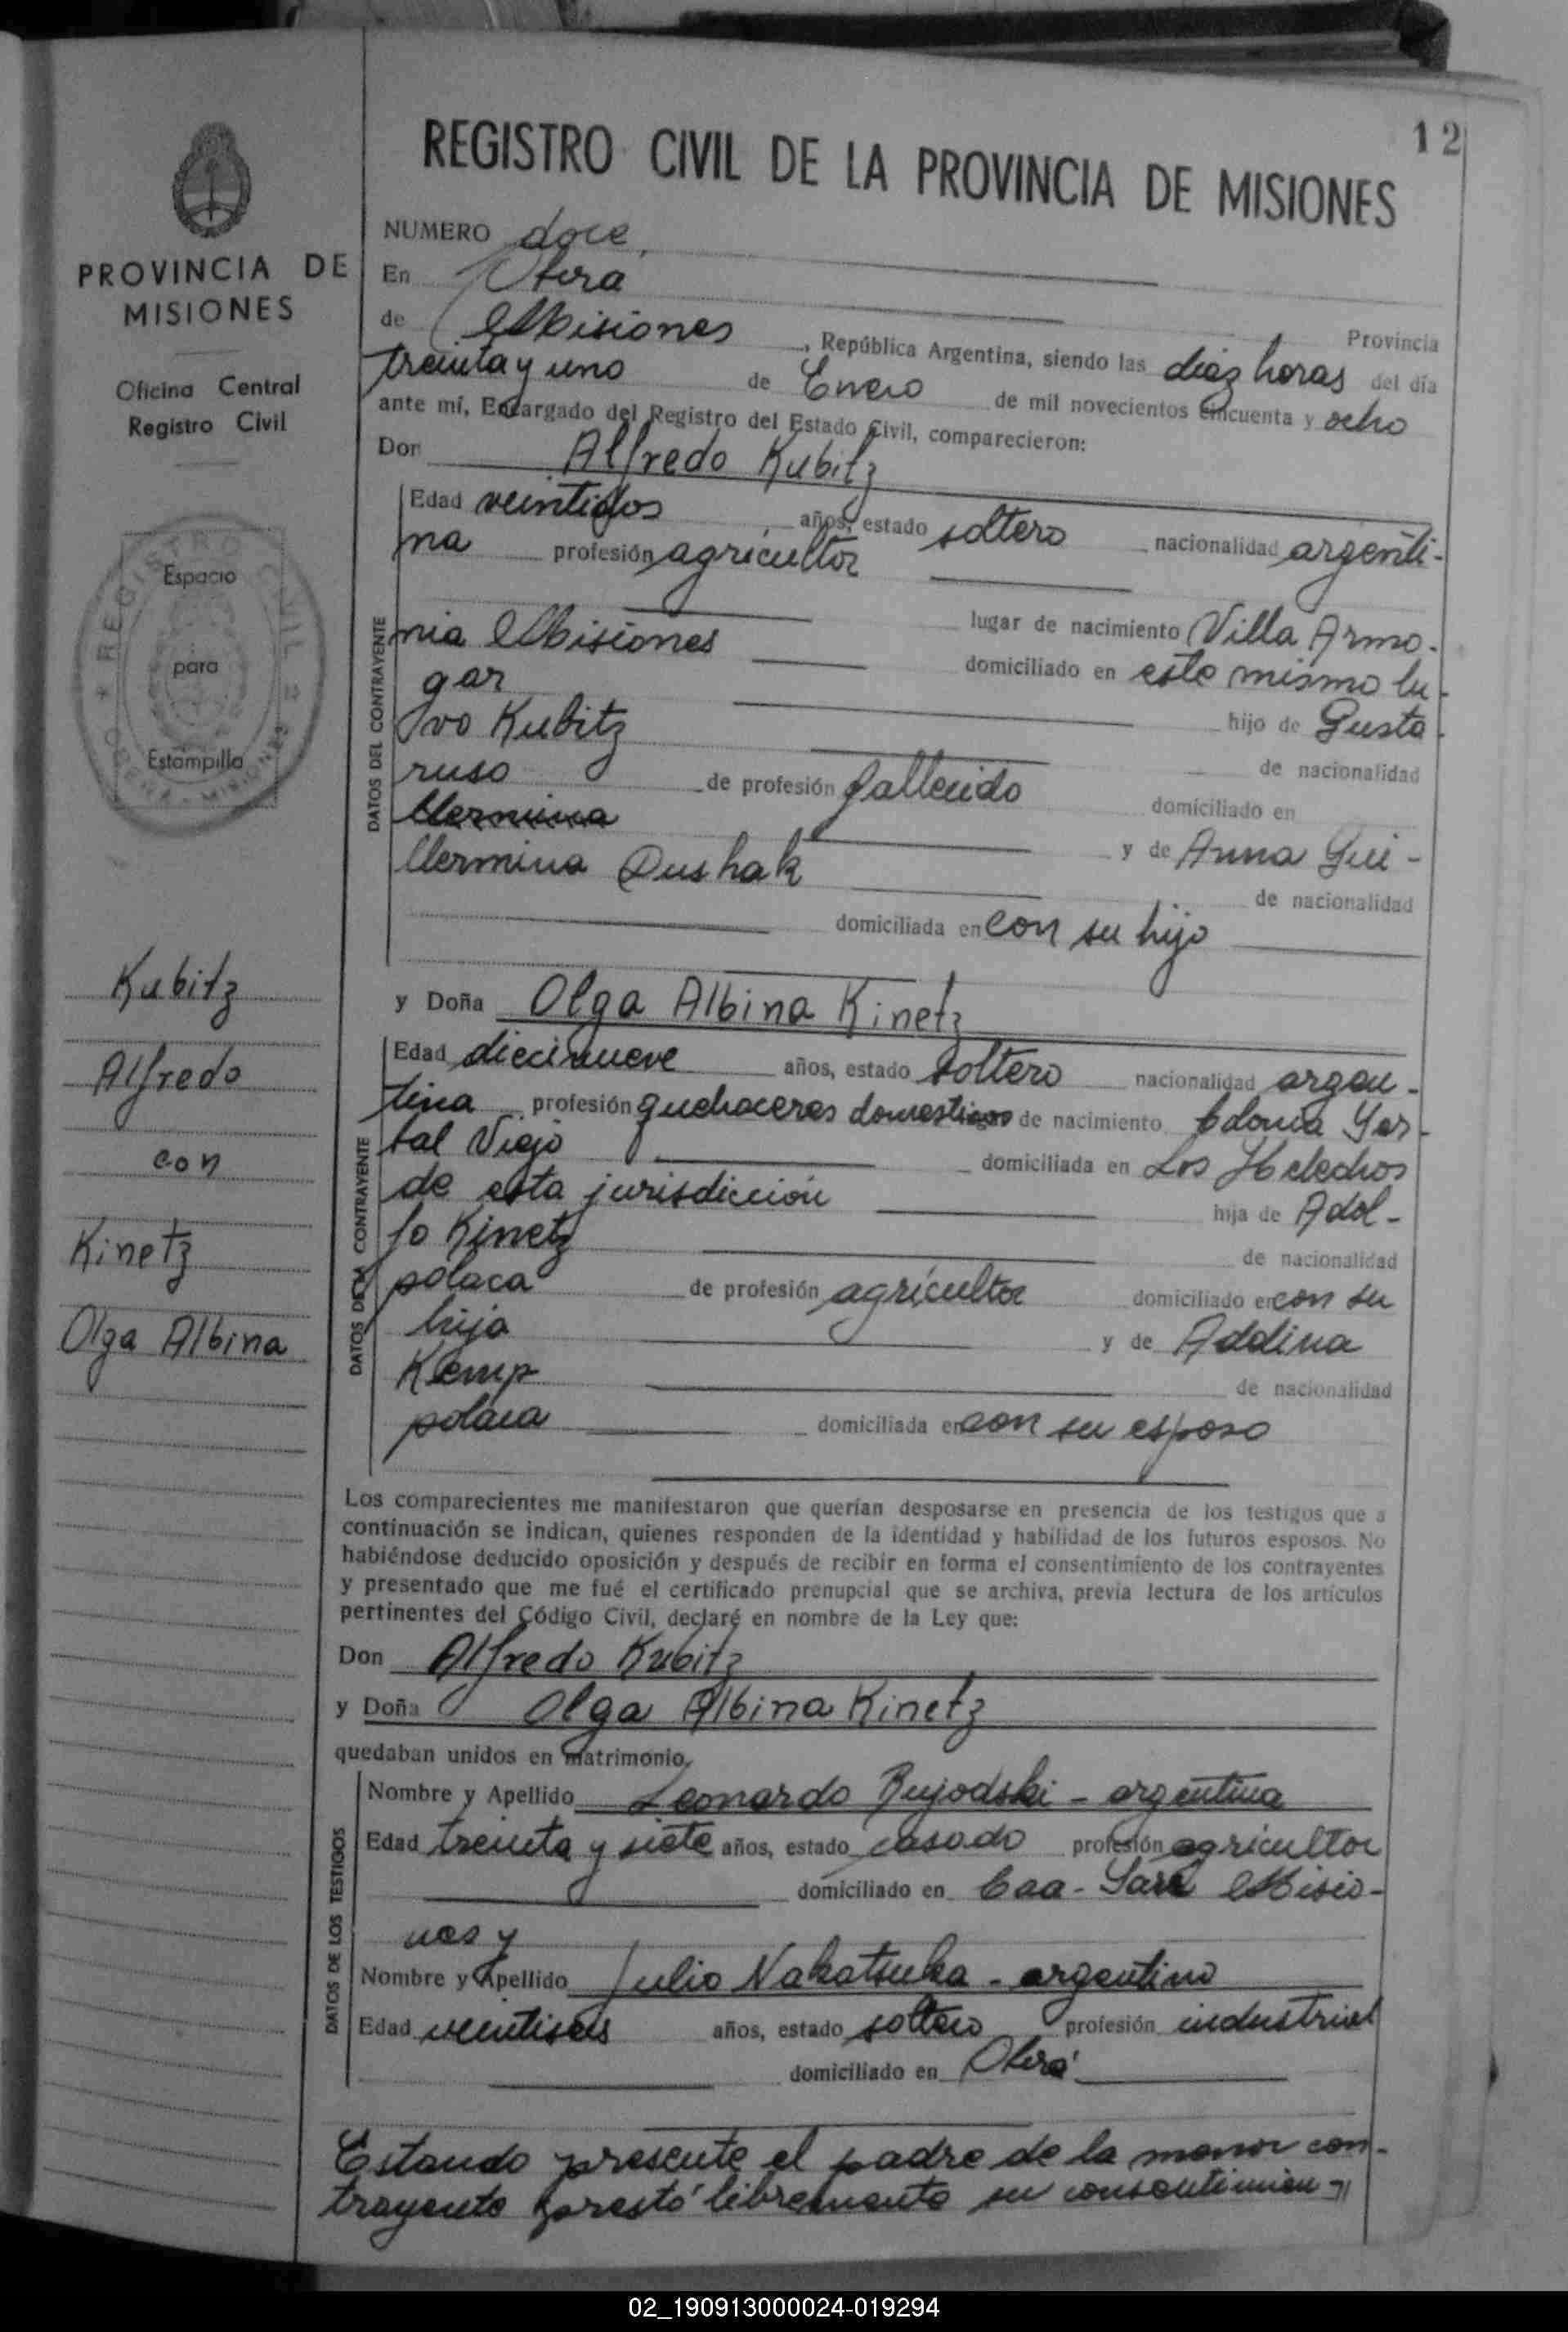 12
REGISTRO CIVIL DE LA PROVINCIA DE MISIONES
PROVINCIA DE
MISIONES
Oficina Central
Registro Civil
REGISTRO CIVIL
Espacio
para
Estampilla
Kubitz
Alfredo
con
Kinetz
Olga Albina
NUMERO doce
En Oberá
Provincia
de Misiones, República Argentina, siendo las diez horas del día
treinta y uno de Enero de mil novecientos cincuenta y ocho
ante mí, Encargado del Registro del Estado Civil, comparecieron:
Don Alfredo Kubitz
DATOS DEL CONTRAYENTE
Edad veintidos años, estado soltero nacionalidad argenti-
na profesión agricultor
lugar de nacimiento Villa Armo-
nia Misiones domiciliado en este mismo lu-
gar hijo de Gusta-
vo Kubitz de nacionalidad
ruso de profesión fallecido domiciliado en
y de Anna Gui-
llermina Dushak de nacionalidad
domiciliada en con su hijo
y Doña Olga Albina Kinetz
DATOS DE LA CONTRAYENTE
Edad diecinueve años, estado soltero nacionalidad argen-
tina profesión quehaceres domesticos de nacimiento Colonia Yer-
bal Viejo domiciliada en Los Helechos
de esta jurisdicción hija de Adol-
fo Kinetz de nacionalidad
polaca de profesión agricultor domiciliado en con su
hija y de Addina
Kemp de nacionalidad
polaca domiciliada en con su esposo
Los comparecientes me manifestaron que querían desposarse en presencia de los testigos que a
continuación se indican, quienes responden de la identidad y habilidad de los futuros esposos. No
habiéndose deducido oposición y después de recibir en forma el consentimiento de los contrayentes
y presentado que me fué el certificado prenupcial que se archiva, previa lectura de los artículos
pertinentes del Código Civil, declaré en nombre de la Ley que:
Don Alfredo Kubitz
y Doña Olga Albina Kinetz
quedaban unidos en matrimonio,
DATOS DE LOS TESTIGOS
Nombre y Apellido Leonardo Bujodski - argentina
Edad treinta y siete años, estado casado profesión agricultor
domiciliado en Caa-Yarí Misio-
nes y
Nombre y Apellido Julio Nakatsuka - argentino
Edad veintiseis años, estado soltero profesión industrial
domiciliado en Oberá
Estando presente el padre de la menor con-
trayente prestó libremente su consentimien-
02_190913000024-019294